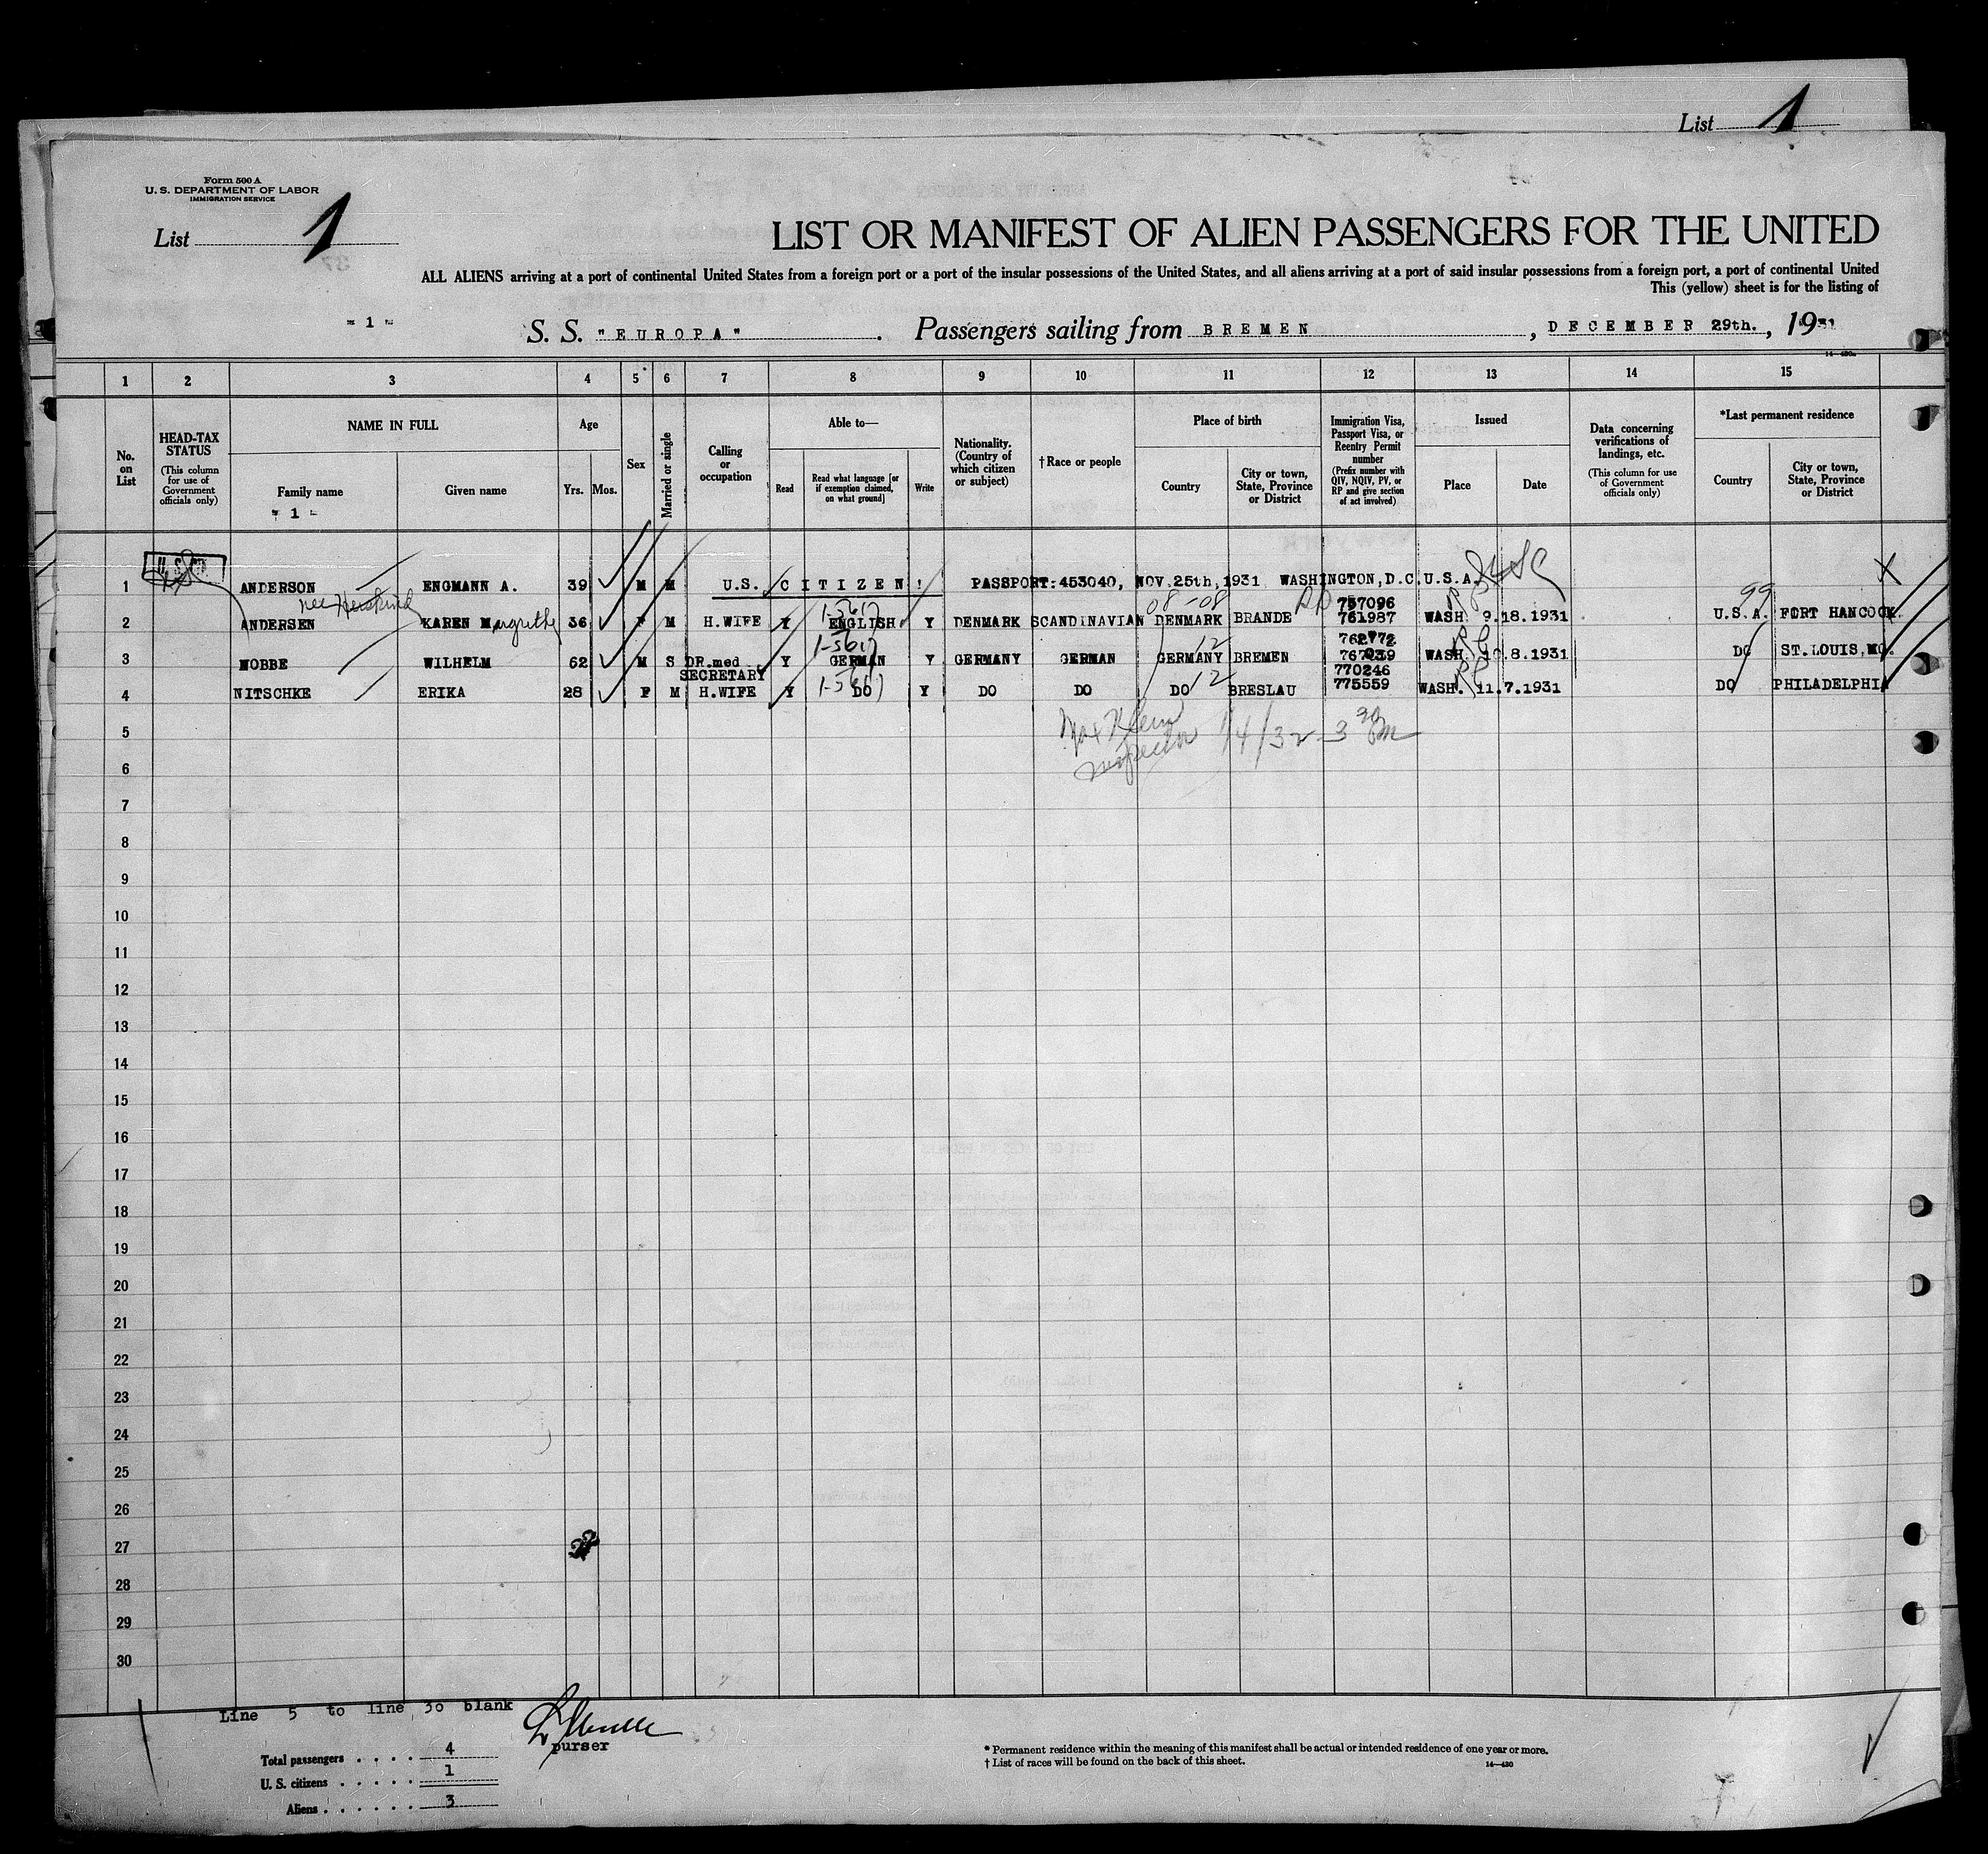 List 1
Form 500 A
U. S. DEPARTMENT OF LABOR
IMMIGRATION SERVICE
List 1
LIST OR MANIFEST OF ALIEN PASSENGERS FOR THE UNITED
ALL ALIENS arriving at a port of continental United States from a foreign port or a port of the insular possessions of the United States, and all aliens arriving at a port of said insular possessions from a foreign port, a port of continental United
This (yellow) sheet is for the listing of
- 1 -
S. S. "EUROPA". Passengers sailing from BREMEN, DECEMBER 29th., 1931
1 2 3 4 5 6 7 8 9 10 11 12 13 14 15
No. on List
HEAD-TAX STATUS (This column for use of Government officials only)
NAME IN FULL
Family name
- 1 -
Given name
Age
Yrs. Mos.
Sex
Married or single
Calling or occupation
Able to—
Read
Read what language [or if exemption claimed, on what ground]
Write
Nationality. (Country of which citizen or subject)
† Race or people
Place of birth
Country
City or town, State, Province or District
Immigration Visa, Passport Visa, or Reentry Permit number (Prefix number with QIV, NQIV, PV, or RP and give section of act involved)
Issued
Place
Date
Data concerning verifications of landings, etc. (This column for use of Government officials only)
*Last permanent residence
Country
City or town, State, Province or District
1 ANDERSON ENGMANN A. 39 M M U.S. CITIZEN! PASSPORT:453040, NOV.25th,1931 WASHINGTON,D.C.U.S.A.
nee 1-5617 08-08 RP 757096 99
2 ANDERSEN KAREN Margrethe 36 F M H.WIFE Y ENGLISH Y DENMARK SCANDINAVIAN DENMARK BRANDE 761987 WASH. 9.18.1931 U.S.A. FORT HANCOCK.
1-5617 12 762772
3 NOBBE WILHELM 62 M S DR.med. Y GERMAN Y GERMANY GERMAN GERMANY BREMEN WASH. 10.8.1931 DO ST.LOUIS,MO.
SECRETARY 1-5617 12 770246
4 NITSCHKE ERIKA 28 F M H.WIFE Y DO Y DO DO DO BRESLAU 775559 WASH. 11.7.1931 DO PHILADELPHIA
Max Klein
Inspector 1/4/32 - 3 30 Pm
5
6
7
8
9
10
11
12
13
14
15
16
17
18
19
20
21
22
23
24
25
26
27
28
29
30
Line 5 to line 30 blank
purser
Total passengers . . . . 4
U. S. citizens . . . . . 1
Aliens . . . . . . 3
* Permanent residence within the meaning of this manifest shall be actual or intended residence of one year or more.
† List of races will be found on the back of this sheet.
14—430